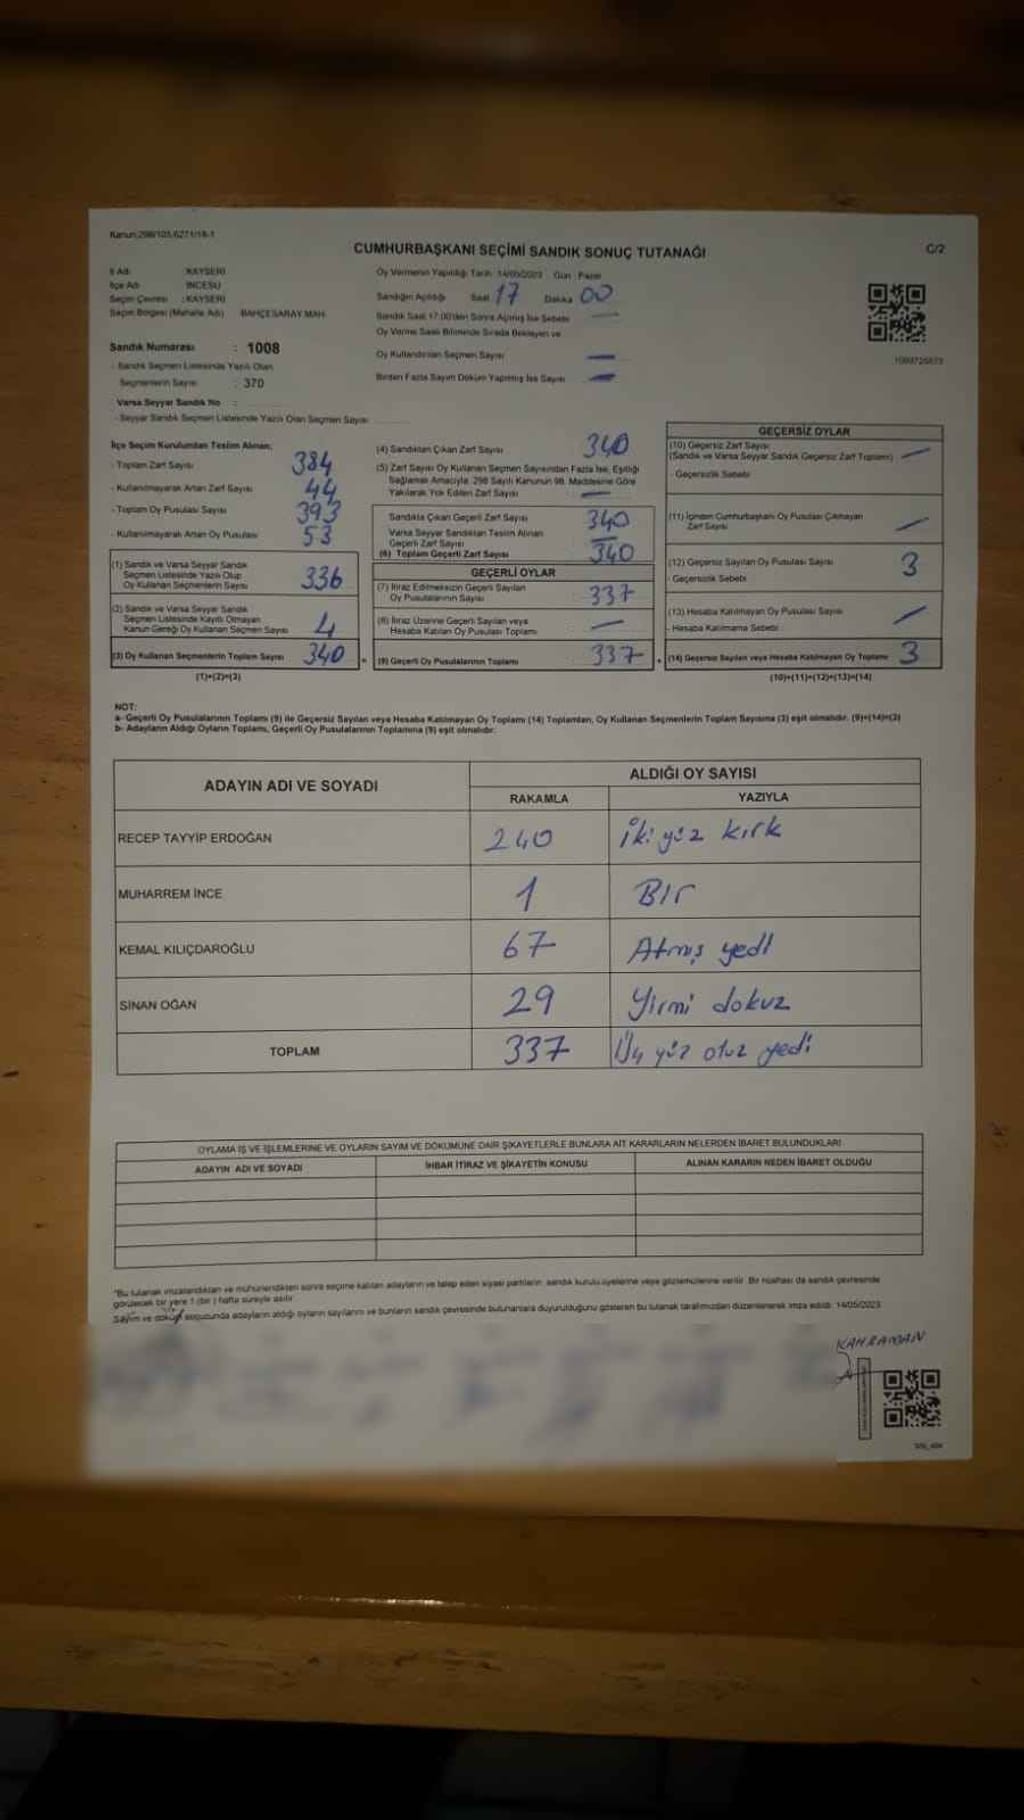 Kanun:298/105,6271/18-1
CUMHURBAŞKANI SEÇİMİ SANDIK SONUÇ TUTANAĞI
C/2
İl Adı : KAYSERİ
İlçe Adı : İNCESU
Seçim Çevresi : KAYSERİ
Seçim Bölgesi (Mahalle Adı) BAHÇESARAY MAH.
Oy Vermenin Yapıldığı Tarih: 14/05/2023 Gün: Pazar
Sandığın Açıldığı Saat 17 Dakika 00
Sandık Saat 17.00'den Sonra Açılmış İse Sebebi —
Oy Verme Saati Bitiminde Sırada Bekleyen ve
Oy Kullandırılan Seçmen Sayısı —
Birden Fazla Sayım Döküm Yapılmış İse Sayısı —
Sandık Numarası : 1008
- Sandık Seçmen Listesinde Yazılı Olan
Seçmenlerin Sayısı : 370
Varsa Seyyar Sandık No :
- Seyyar Sandık Seçmen Listesinde Yazılı Olan Seçmen Sayısı:
İlçe Seçim Kurulundan Teslim Alınan;
- Toplam Zarf Sayısı 384
- Kullanılmayarak Artan Zarf Sayısı 44
- Toplam Oy Pusulası Sayısı 393
- Kullanılmayarak Artan Oy Pusulası 53
(1) Sandık ve Varsa Seyyar Sandık
Seçmen Listesinde Yazılı Olup
Oy Kullanan Seçmenlerin Sayısı 336
(2) Sandık ve Varsa Seyyar Sandık
Seçmen Listesinde Kayıtlı Olmayan
Kanun Gereği Oy Kullanan Seçmen Sayısı 4
(3) Oy Kullanan Seçmenlerin Toplam Sayısı 340
(1)+(2)=(3)
(4) Sandıktan Çıkan Zarf Sayısı 340
(5) Zarf Sayısı Oy Kullanan Seçmen Sayısından Fazla İse, Eşitliği
Sağlamak Amacıyla, 298 Sayılı Kanunun 98. Maddesine Göre
Yakılarak Yok Edilen Zarf Sayısı —
Sandıkta Çıkan Geçerli Zarf Sayısı 340
Varsa Seyyar Sandıktan Teslim Alınan
Geçerli Zarf Sayısı —
(6) Toplam Geçerli Zarf Sayısı 340
GEÇERLİ OYLAR
(7) İtiraz Edilmeksizin Geçerli Sayılan
Oy Pusulalarının Sayısı 337
(8) İtiraz Üzerine Geçerli Sayılan veya
Hesaba Katılan Oy Pusulası Toplamı —
= (9) Geçerli Oy Pusulalarının Toplamı 337
GEÇERSİZ OYLAR
(10) Geçersiz Zarf Sayısı
(Sandık ve Varsa Seyyar Sandık Geçersiz Zarf Toplamı) —
- Geçersizlik Sebebi
(11) İçinden Cumhurbaşkanı Oy Pusulası Çıkmayan
Zarf Sayısı —
(12) Geçersiz Sayılan Oy Pusulası Sayısı 3
- Geçersizlik Sebebi
(13) Hesaba Katılmayan Oy Pusulası Sayısı —
- Hesaba Katılmama Sebebi
+ (14) Geçersiz Sayılan veya Hesaba Katılmayan Oy Toplamı 3
(10)+(11)+(12)+(13)=(14)
NOT:
a- Geçerli Oy Pusulalarının Toplamı (9) ile Geçersiz Sayılan veya Hesaba Katılmayan Oy Toplamı (14) Toplamları, Oy Kullanan Seçmenlerin Toplam Sayısına (3) eşit olmalıdır. (9)+(14)=(3)
b- Adayların Aldığı Oyların Toplamı, Geçerli Oy Pusulalarının Toplamına (9) eşit olmalıdır.
ADAYIN ADI VE SOYADI
ALDIĞI OY SAYISI
RAKAMLA YAZIYLA
RECEP TAYYİP ERDOĞAN 240 İki yüz kırk
MUHARREM İNCE 1 BIr
KEMAL KILIÇDAROĞLU 67 Atmış yedI
SİNAN OĞAN 29 Yirmi dokuz
TOPLAM 337 Üç yüz otuz yedi
OYLAMA İŞ VE İŞLEMLERİNE VE OYLARIN SAYIM VE DÖKÜMÜNE DAİR ŞİKAYETLERLE BUNLARA AİT KARARLARIN NELERDEN İBARET BULUNDUKLARI
ADAYIN ADI VE SOYADI İHBAR İTİRAZ VE ŞİKAYETİN KONUSU ALINAN KARARIN NEDEN İBARET OLDUĞU
"Bu tutanak imzalandıktan ve mühürlendikten sonra seçime katılan adayların ve talep eden siyasi partilerin sandık kurulu üyelerine veya gözlemcilerine verilir. Bir nüshası da sandık çevresinde
görülecek bir yere 1 (bir) hafta süreyle asılır.
Sayım ve döküm sonucunda adayların aldığı oyların sayılarını ve bunların sandık çevresinde bulunanlara duyurulduğunu gösteren bu tutanak tarafımızdan düzenlenerek imza edildi. 14/05/2023
KAHRAMAN